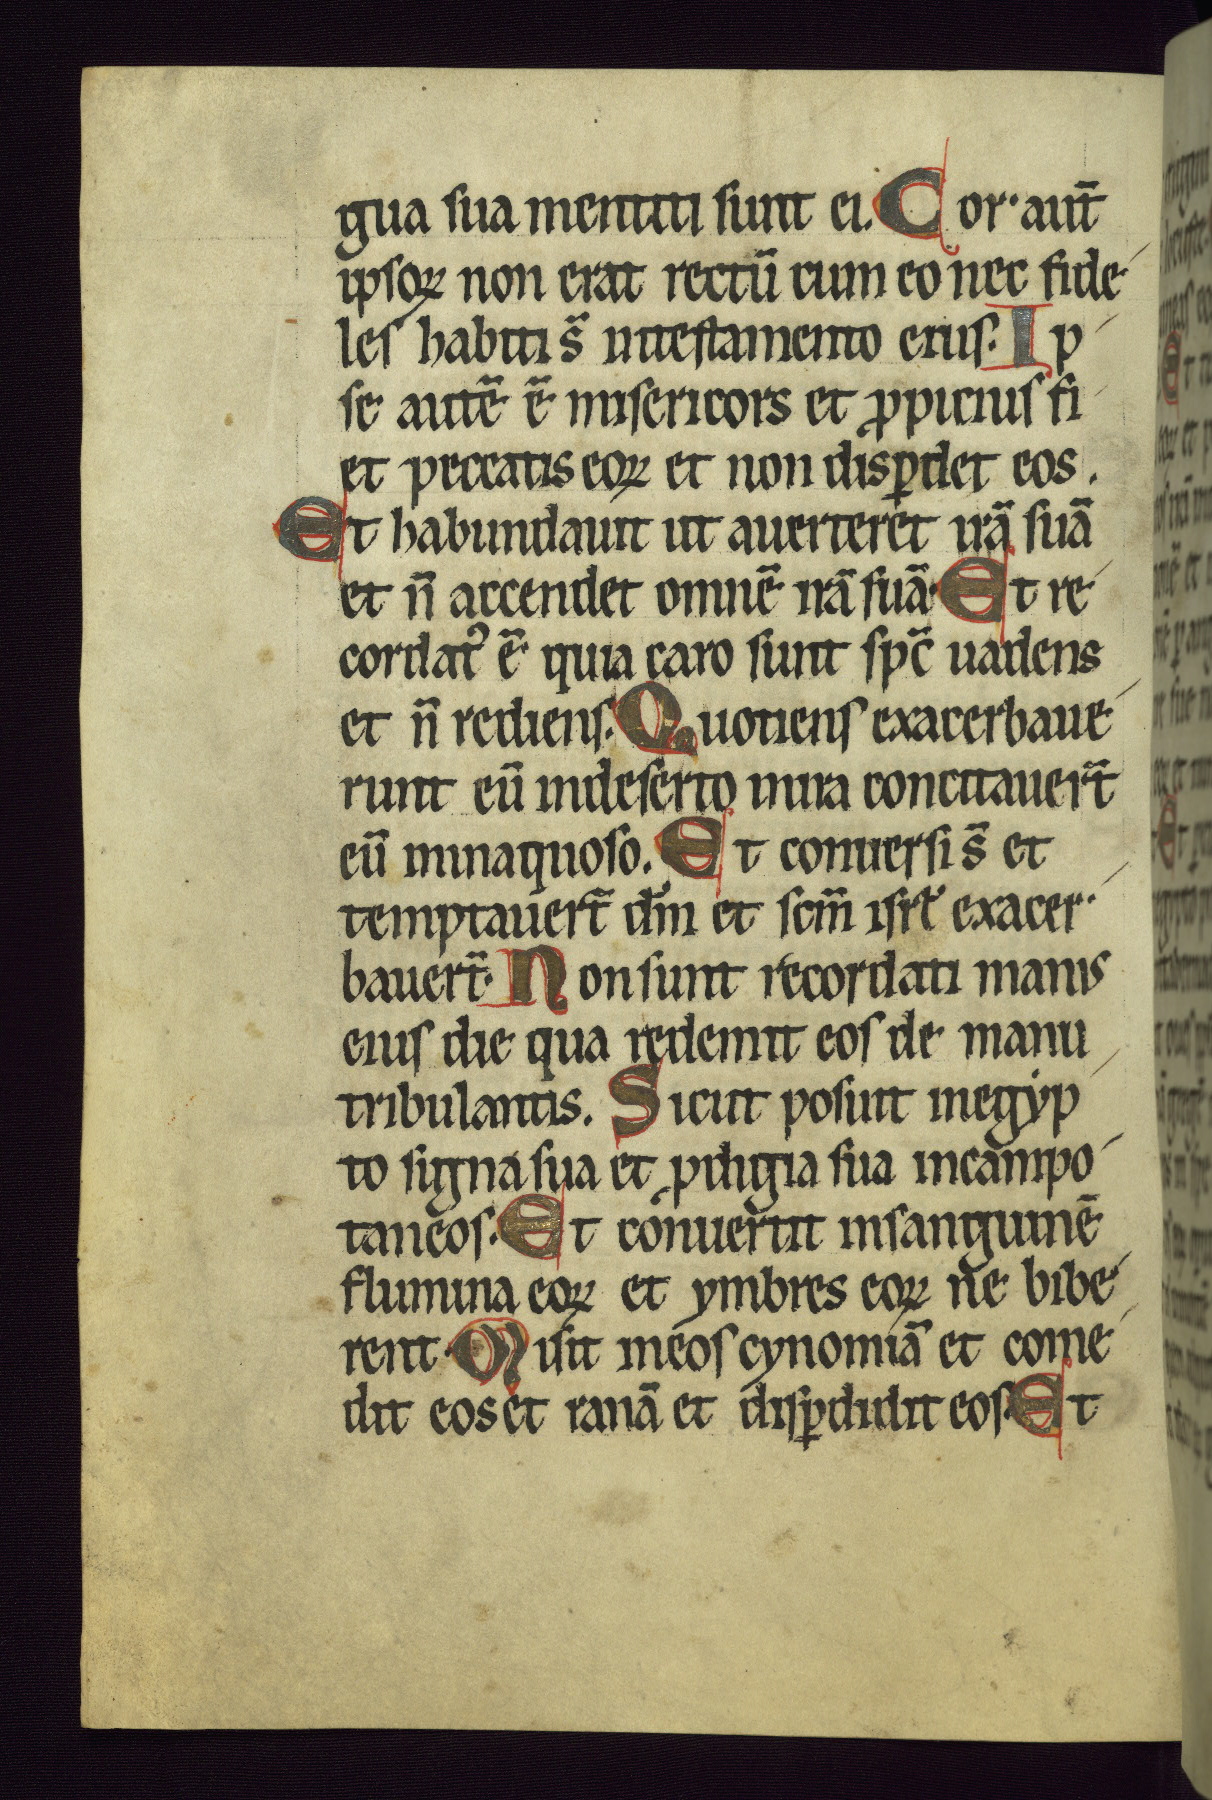 gua sua mentiti sunt ei. Cor aut̄
ipsoꝝ non erat rectū cum eo nec fide
les habiti s̄ intestamento eius. Ip
se autē ē misericors et ꝓpicius fi
et peccatis eoꝝ et non disꝑdet eos.
Et habundauit ut auerteret irā suā
et n̄ accendet omnē irā suā. Et re
cordatꝰ ē quia caro sunt spc̄ uadens
et n̄ rediens. Quotiens exacerbaue
runt eū indeserto inira concitauert̄
eū ininaquoso. Et conuersi s̄ et
temptauert̄ dm̄ et scm̄ isrl̄ exacer
bauert̄. Non sunt recordati manis
eius die qua redemit eos de manu
tribulantis. Sicut posuit inegyp
to signa sua et ꝓdigia sua incampo
taneos. Et conuertit insanguinē
flumina eoꝝ et ymbres eoꝝ ne bibe
rent. Misit ineos cynomiā et come
dit eos et ranā et disꝑdidit eos. Et